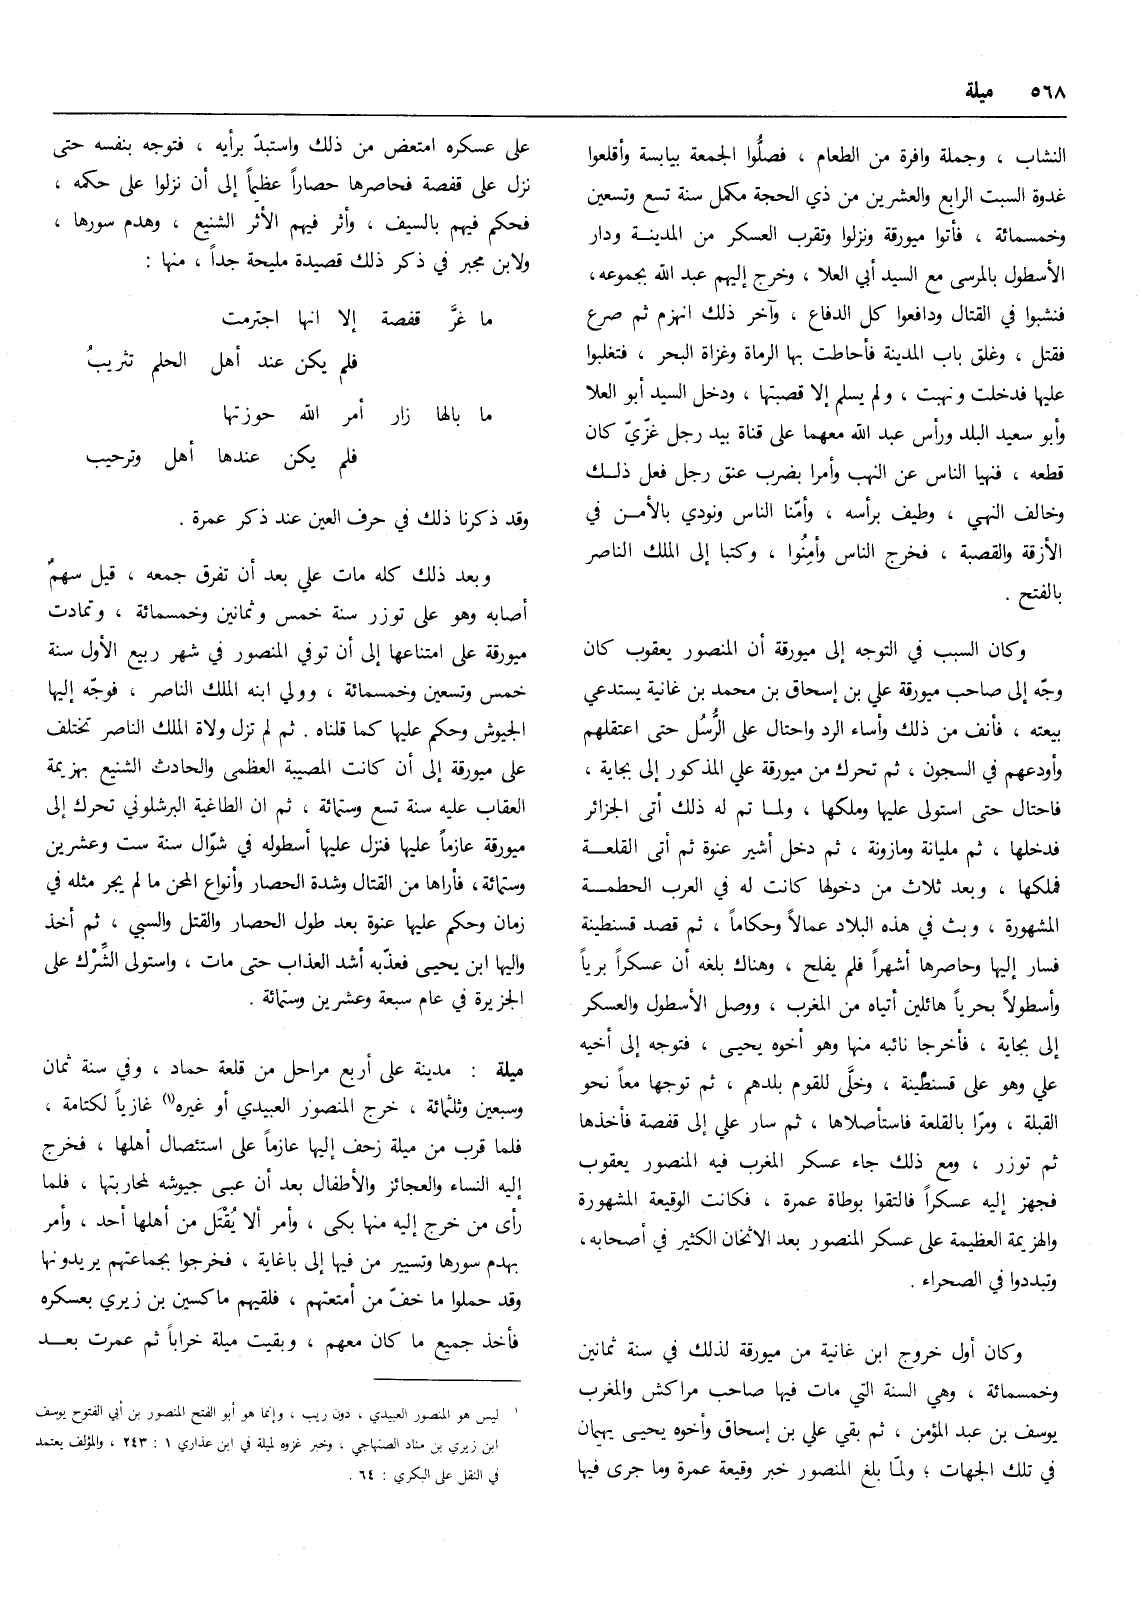 ٥٦٨ ميلة
النشاب ، وجملة وافرة من الطعام ، فصلُّوا الجمعة بيابسة وأقلعوا
غدوة السبت الرابع والعشرين من ذي الحجة مكمل سنة تسع وتسعين
وخمسمائة ، فأتوا ميورقة ونزلوا وتقرب العسكر من المدينة ودار
الأسطول بالمرسى مع السيد أبي العلا ، وخرج إليهم عبد الله بجموعه ،
فنشبوا في القتال ودافعوا كل الدفاع ، وآخر ذلك انهزم ثم صرع
فقتل ، وغلق باب المدينة فأحاطت بها الرماة وغزاة البحر ، فتغلبوا
عليها فدخلت ونهبت ، ولم يسلم إلا قصبتها ، ودخل السيد أبو العلا
وأبو سعيد البلد ورأس عبد الله معهما على قناة بيد رجل غزّيّ كان
قطعه ، فنهيا الناس عن النهب وأمرا بضرب عنق رجل فعل ذلك
وخالف النهي ، وطيف برأسه ، وأمّنا الناس ونودي بالأمن في
الأزقة والقصبة ، فخرج الناس وأمِنُوا ، وكتبا إلى الملك الناصر
بالفتح .
وكان السبب في التوجه إلى ميورقة أن المنصور يعقوب كان
وجّه إلى صاحب ميورقة علي بن إسحاق بن محمد بن غانية يستدعي
بيعته ، فأنف من ذلك وأساء الرد واحتال على الرُّسُل حتى اعتقلهم
وأودعهم في السجون ، ثم تحرك من ميورقة علي المذكور إلى بجاية ،
فاحتال حتى استولى عليها وملكها ، ولما تم له ذلك أتى الجزائر
فدخلها ، ثم مليانة ومازونة ، ثم دخل أشير عنوة ثم أتى القلعة
فملكها ، وبعد ثلاث من دخولها كانت له في العرب الحطمة
المشهورة ، وبث في هذه البلاد عمالاً وحكاماً ، ثم قصد قسنطينة
فسار إليها وحاصرها أشهراً فلم يفلح ، وهناك بلغه أن عسكراً برياً
وأسطولاً بحرياً هائلين أتياه من المغرب ، ووصل الأسطول والعسكر
إلى بجاية ، فأخرجا نائبه منها وهو أخوه يحيى ، فتوجه إلى أخيه
علي وهو على قسنطينة ، وخلَّى للقوم بلدهم ، ثم توجها معاً نحو
القبلة ، ومرّا بالقلعة فاستأصلاها ، ثم سار علي إلى قفصة فأخذها
ثم توزر ، ومع ذلك جاء عسكر المغرب فيه المنصور يعقوب
فجهز إليه عسكراً فالتقوا بوطاة عمرة ، فكانت الوقيعة المشهورة
والهزيمة العظيمة على عسكر المنصور بعد الاثخان الكثير في أصحابه ،
وتبددوا في الصحراء .
وكان أول خروج ابن غانية من ميورقة لذلك في سنة ثمانين
وخمسمائة ، وهي السنة التي مات فيها صاحب مراكش والمغرب
يوسف بن عبد المؤمن ، ثم بقي علي بن إسحاق وأخوه يحيى يهيمان
في تلك الجهات ؛ ولمّا بلغ المنصور خبر وقيعة عمرة وما جرى فيها
على عسكره امتعض من ذلك واستبدّ برأيه ، فتوجه بنفسه حتى
نزل على قفصة فحاصرها حصاراً عظيماً إلى أن نزلوا على حكمه ،
فحكم فيهم بالسيف ، وأثر فيهم الأثر الشنيع ، وهدم سورها ،
ولابن مجبر في ذكر ذلك قصيدة مليحة جداً ، منها :
ما غرَّ قفصة إلا انها اجترمت
فلم يكن عند أهل الحلم تثريبُ
ما بالها زار أمر الله حوزتها
فلم يكن عندها أهل وترحيب
وقد ذكرنا ذلك في حرف العين عند ذكر عمرة .
وبعد ذلك كله مات علي بعد أن تفرق جمعه ، قيل سهمٌ
أصابه وهو على توزر سنة خمس وثمانين وخمسمائة ، وتمادت
ميورقة على امتناعها إلى أن توفي المنصور في شهر ربيع الأول سنة
خمس وتسعين وخمسمائة ، وولي ابنه الملك الناصر ، فوجّه إليها
الجيوش وحكم عليها كما قلناه . ثم لم تزل ولاة الملك الناصر تختلف
على ميورقة إلى أن كانت المصيبة العظمى والحادث الشنيع بهزيمة
العقاب عليه سنة تسع وستمائة ، ثم ان الطاغية البرشلوني تحرك إلى
ميورقة عازماً عليها فنزل عليها أسطوله في شوّال سنة ست وعشرين
وستمائة ، فأراها من القتال وشدة الحصار وأنواع المحن ما لم يجر مثله في
زمان وحكم عليها عنوة بعد طول الحصار والقتل والسبي ، ثم أخذ
واليها ابن يحيى فعذّبه أشد العذاب حتى مات ، واستولى الشِّرْك على
الجزيرة في عام سبعة وعشرين وستمائة .
ميلة : مدينة على أربع مراحل من قلعة حماد ، وفي سنة ثمان
وسبعين وثلثمائة ، خرج المنصور العبيدي أو غيره(١) غازياً لكتامة ،
فلما قرب من ميلة زحف إليها عازماً على استئصال أهلها ، فخرج
إليه النساء والعجائز والأطفال بعد أن عبى جيوشه لمحاربتها ، فلما
رأى من خرج إليه منها بكى ، وأمر ألا يُقْتَل من أهلها أحد ، وأمر
بهدم سورها وتسيير من فيها إلى باغاية ، فخرجوا بجماعتهم يريدونها
وقد حملوا ما خفّ من أمتعتهم ، فلقيهم ماكسين بن زيري بعسكره
فأخذ جميع ما كان معهم ، وبقيت ميلة خراباً ثم عمرت بعد
١ ليس هو المنصور العبيدي ، دون ريب ، وإنما هو أبو الفتح المنصور بن أبي الفتوح يوسف
ابن زيري بن مناد الصنهاجي ، وخبر غزوه لميلة في ابن عذاري ١ : ٢٤٣ ، والمؤلف يعتمد
في النقل على البكري : ٦٤ .